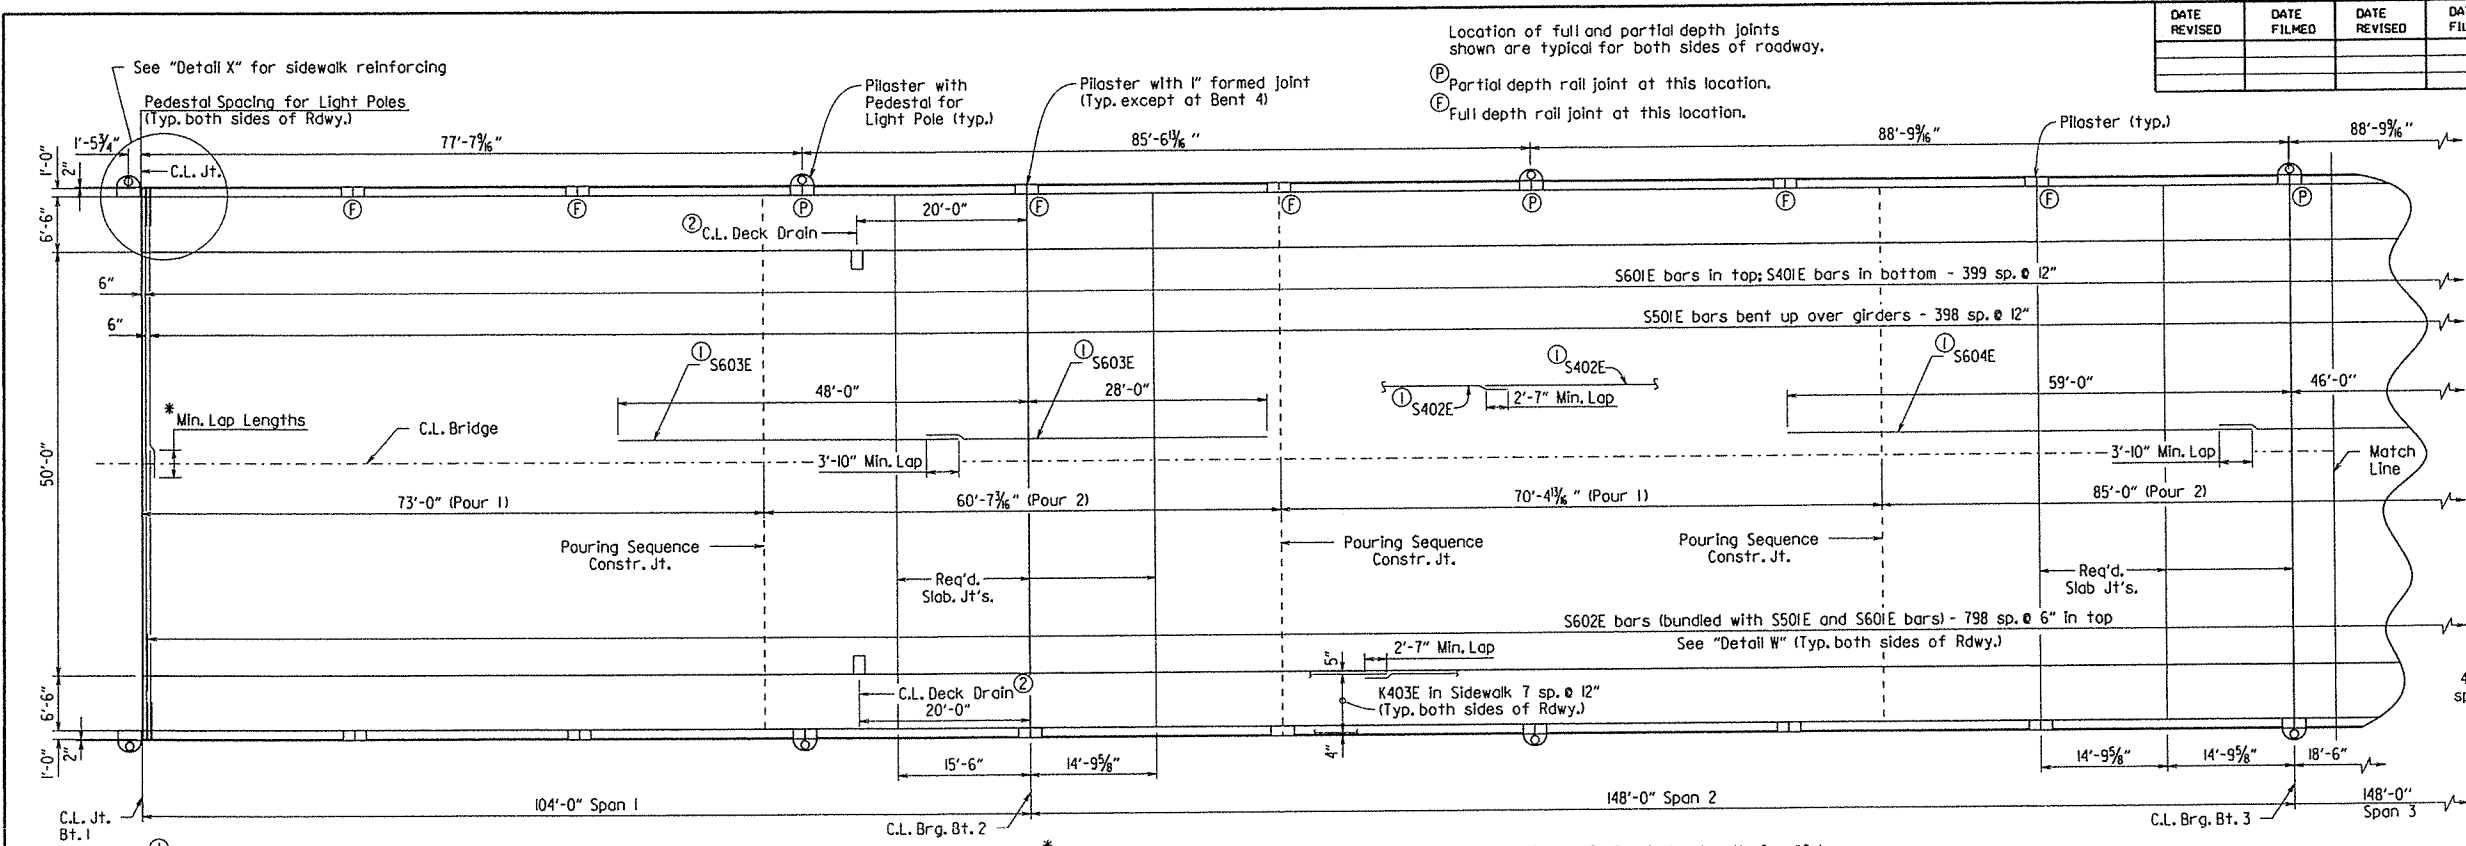 Location of full and partial depth joints
shown are typical for both sides of roadway.
Ⓟ Partial depth rail joint at this location.
Ⓕ Full depth rail joint at this location.
DATE REVISED
DATE FILMED
DATE REVISED
See "Detail X" for sidewalk reinforcing
Pedestal Spacing for Light Poles
(Typ. both sides of Rdwy.)
Pilaster with
Pedestal for
Light Pole (typ.)
Pilaster with 1" formed joint
(Typ. except at Bent 4)
Pilaster (typ.)
1'-5¾"
77'-7⁹⁄₁₆"
85'-6¹³⁄₁₆"
88'-9⁹⁄₁₆"
88'-9⁹⁄₁₆"
1'-0"
2"
C.L. Jt.
Ⓕ Ⓕ Ⓟ Ⓕ Ⓕ Ⓟ Ⓕ Ⓕ Ⓟ
6'-6"
20'-0"
② C.L. Deck Drain
6"
S601E bars in top; S401E bars in bottom - 399 sp. @ 12"
6"
S501E bars bent up over girders - 398 sp. @ 12"
① S603E
① S603E
① S402E
① S604E
48'-0"
28'-0"
① S402E
2'-7" Min. Lap
59'-0"
46'-0"
* Min. Lap Lengths
C.L. Bridge
3'-10" Min. Lap
3'-10" Min. Lap
Match
Line
50'-0"
73'-0" (Pour 1)
60'-7³⁄₁₆" (Pour 2)
70'-4¹³⁄₁₆" (Pour 1)
85'-0" (Pour 2)
Pouring Sequence
Constr. Jt.
Pouring Sequence
Constr. Jt.
Pouring Sequence
Constr. Jt.
Req'd.
Slab. Jt's.
Req'd.
Slab Jt's.
S602E bars (bundled with S501E and S601E bars) - 798 sp. @ 6" in top
See "Detail W" (Typ. both sides of Rdwy.)
2'-7" Min. Lap
5"
6'-6"
C.L. Deck Drain ②
20'-0"
K403E in Sidewalk 7 sp. @ 12"
(Typ. both sides of Rdwy.)
4"
1'-0"
2"
15'-6"
14'-9⅝"
14'-9⅝"
14'-9⅝"
18'-6"
104'-0" Span 1
148'-0" Span 2
148'-0"
Span 3
C.L. Jt.
Bt. 1
C.L. Brg. Bt. 2
C.L. Brg. Bt. 3
①
*